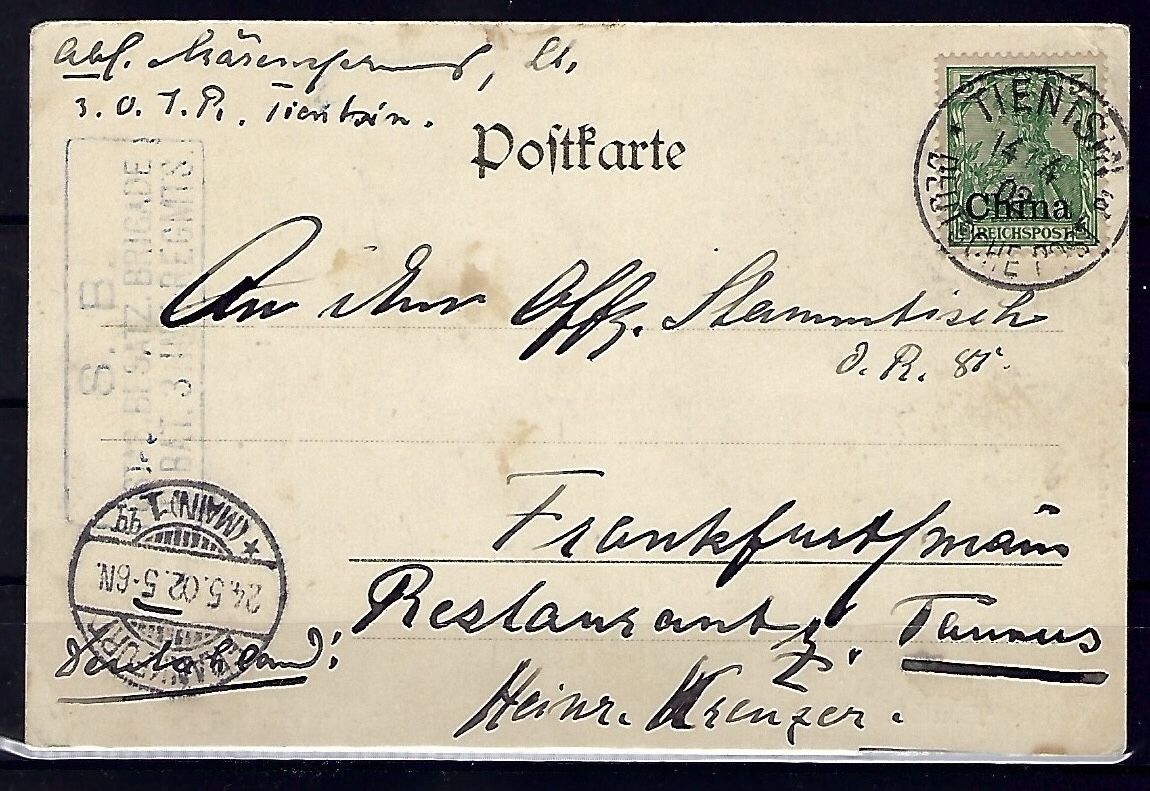 Abs. Lt.
3. O. I. R. Tientsin.
Postkarte
TIENTSIN
14 4
02
DEUTSCHE POST
China
REICHSPOST
S. B.
BESATZ. BRIGADE
BAT. 3. INF. REGMTS.
An ihren Offz. Stammtisch
J. R. 81.
Frankfurt/Main
Restaurant z. Taunus
Heinr. Krenzer.
Deutschland!
FRANKFURT
24.5.02.5-6N.
(MAIN) 1 *